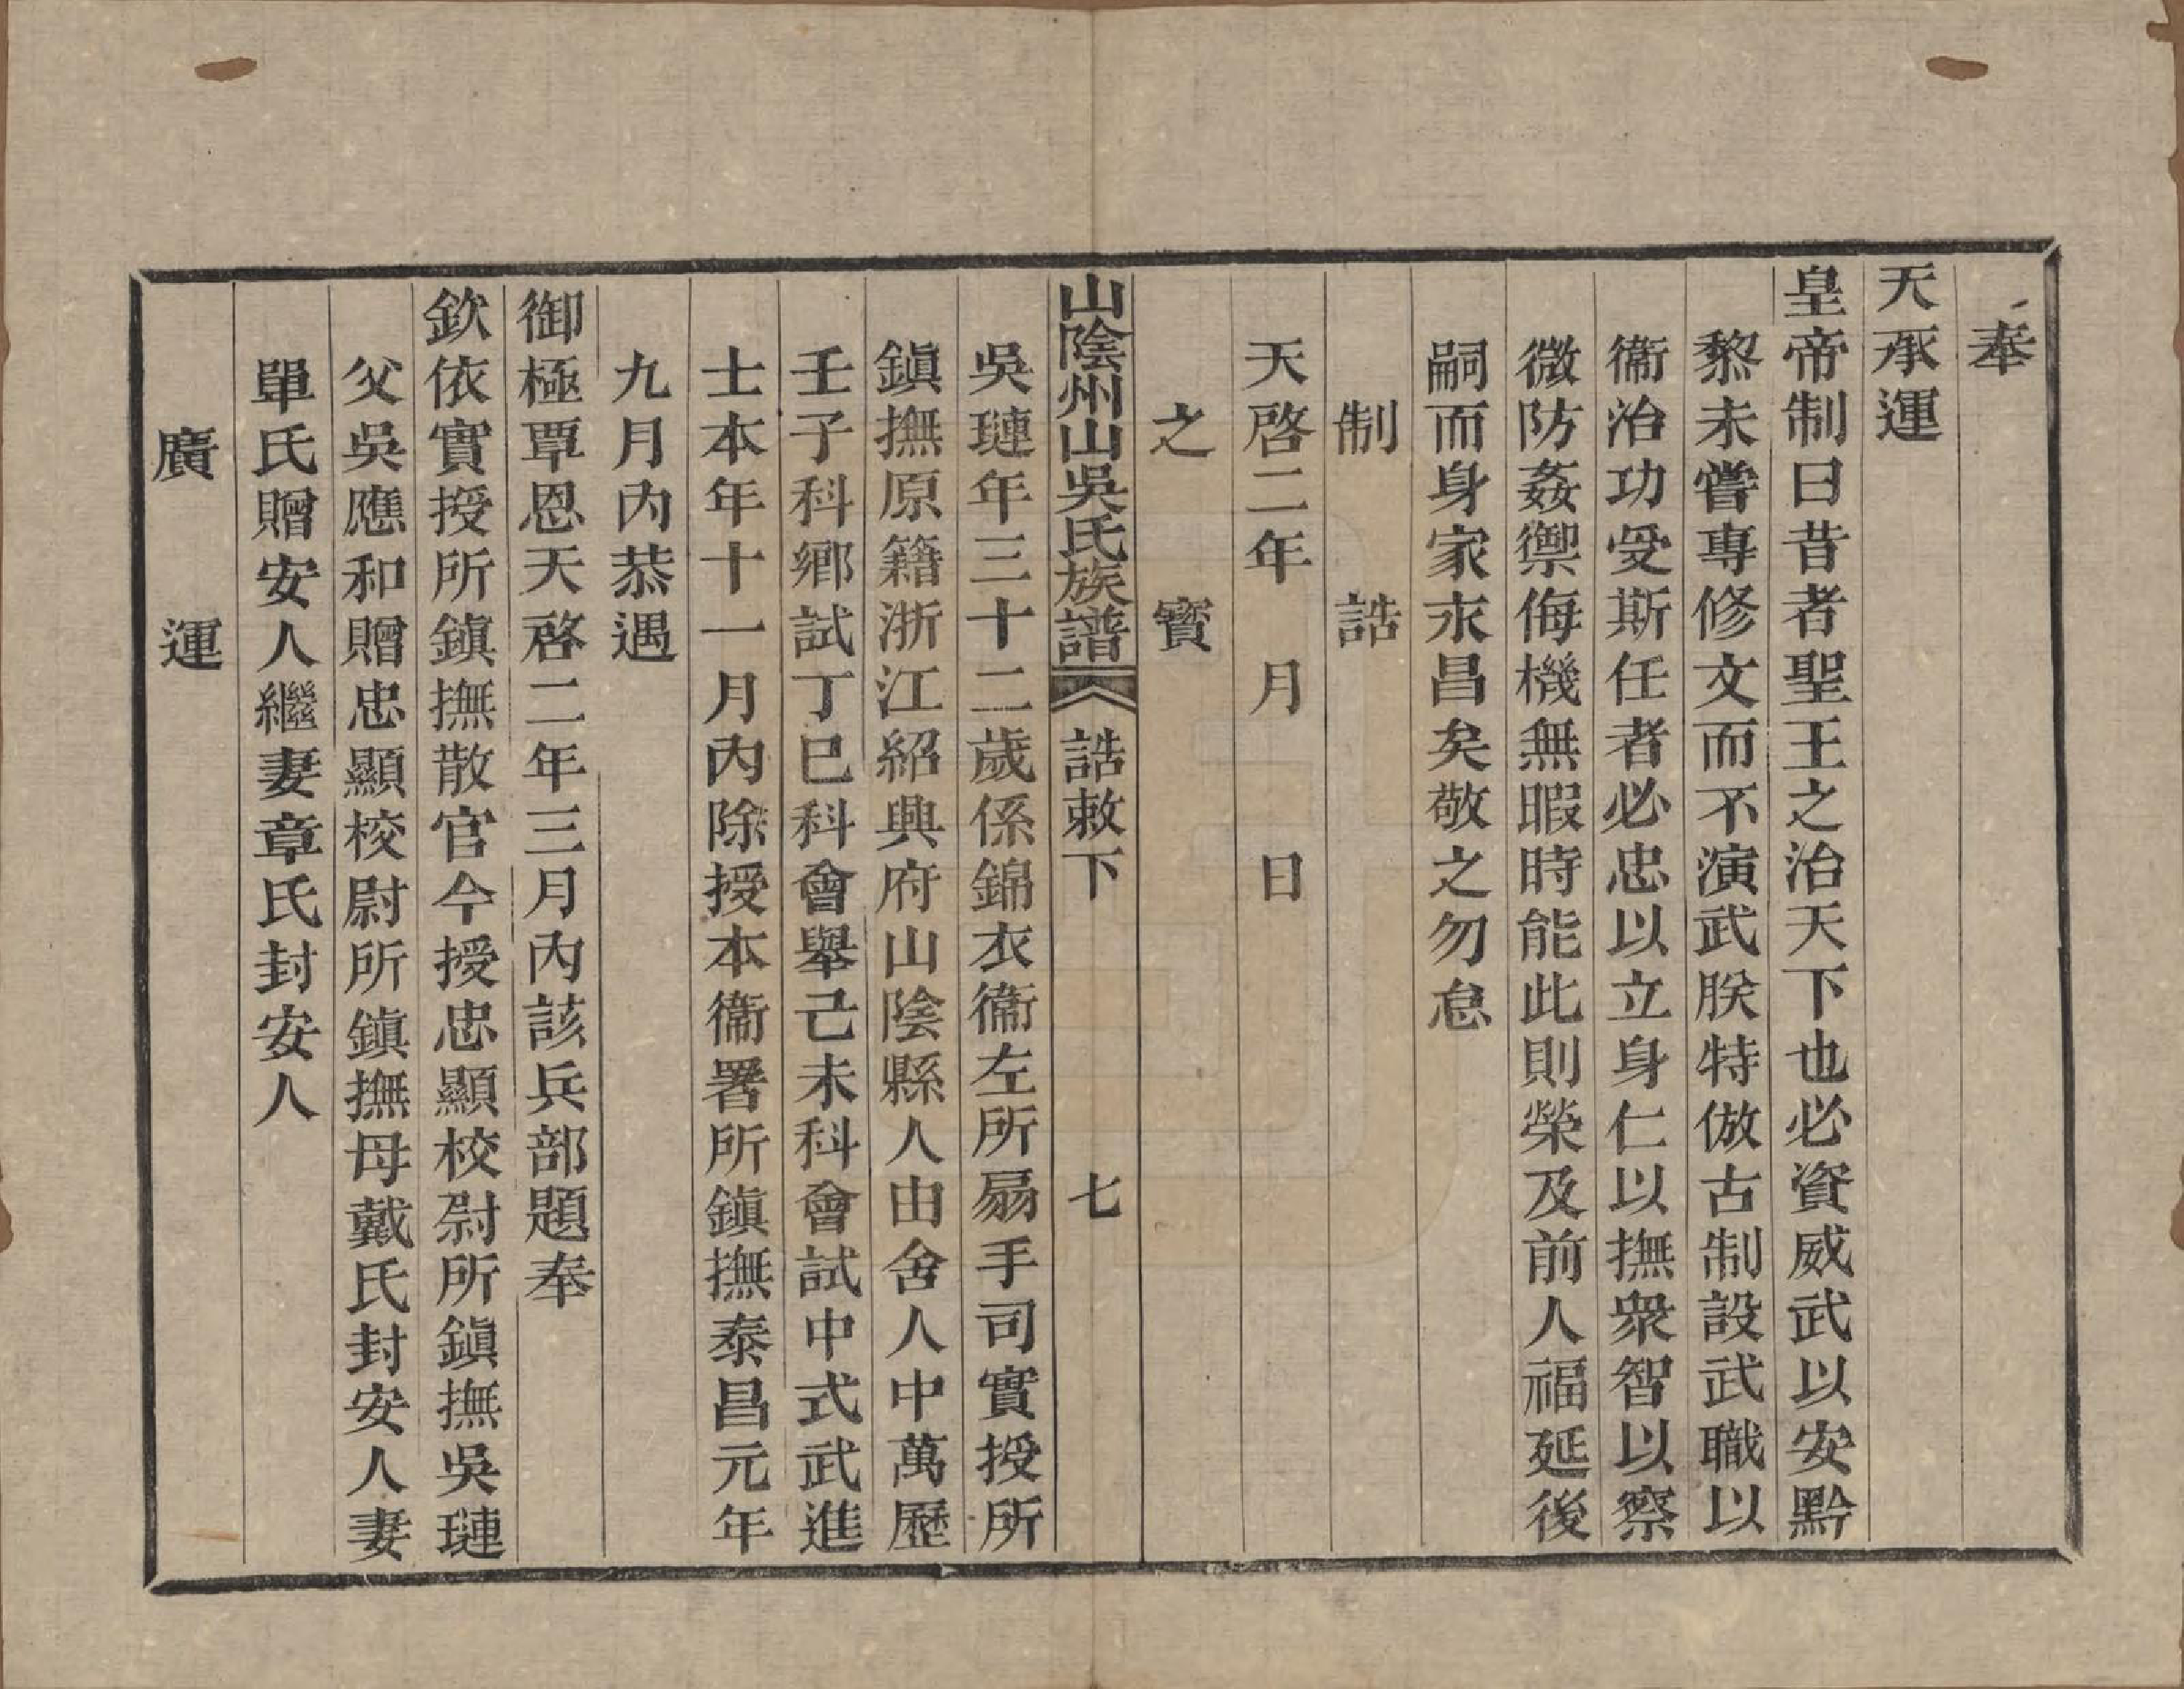 奉
天承運
皇帝制曰昔者聖王之治天下也必資威武以安黔
黎未嘗專修文而不演武朕特倣古制設武職以
衞治功受斯任者必忠以立身仁以撫衆智以察
微防姦禦侮機無暇時能此則榮及前人福延後
嗣而身家永昌矣敬之勿怠
制誥
天啓二年 月 日
之寶
山陰州山吳氏族譜 誥敕下 七
吳璉年三十二歲係錦衣衞左所扇手司實授所
鎭撫原籍浙江紹興府山陰縣人由舍人中萬歷
壬子科鄉試丁巳科會舉己未科會試中式武進
士本年十一月內除授本衞署所鎭撫泰昌元年
九月內恭遇
御極覃恩天啓二年三月內該兵部題奉
欽依實授所鎭撫散官今授忠顯校尉所鎭撫吳璉
父吳應和贈忠顯校尉所鎭撫母戴氏封安人妻
單氏贈安人繼妻章氏封安人
廣運